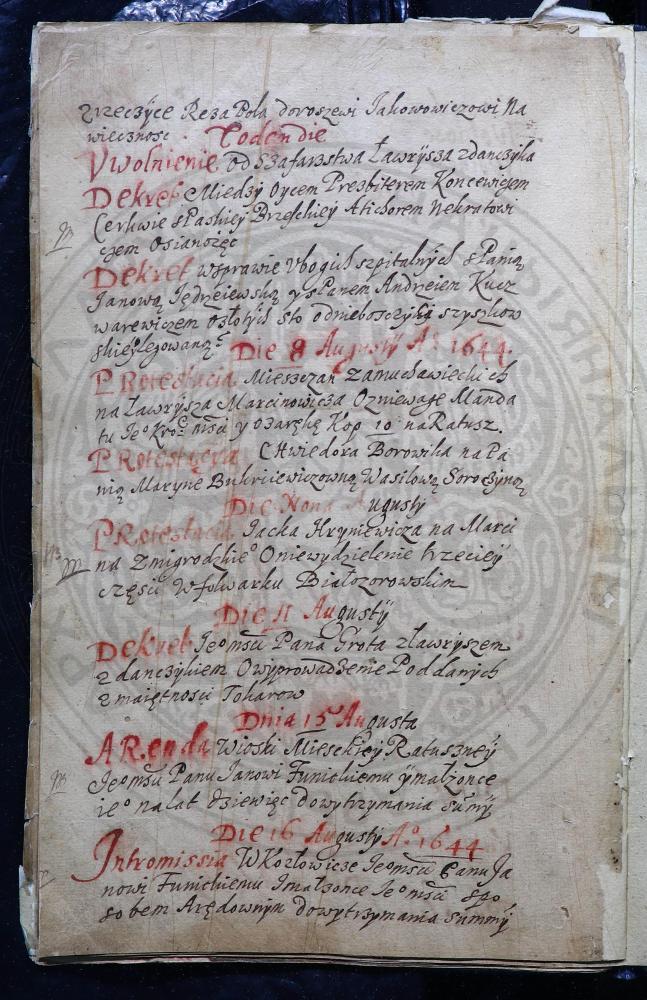 zrzeczyce Reza Pola doroszewi Jakowowiczowi Na
wiecznosc. Eodem die
Uwolnienie od Szafarzstwa Ławrysza zdanczyka
Dekret Miedzy Oycem Prezbiterem Koncewiczem
Cerkwie spaskiey Brzeskiey Atichorem Nekratowi
czem Osianożęc
Dekret wsprawie Ubogich szpitalnych sPanią
Janową Jędrzeiewską y sPanem Andrzeiem Kucz
warewiczem ozłotych sto odnieboszczyka szyszkow
skie° legowaną
Die 8 Augusty A° 1644.
PRotestacia Mieszczan zamuchawieckich
na Ławrysza Marcinowicza Ozniewagę Manda
tu Je° Kro: mści y ozarękę Kop 10 na Ratusz.
PRotestacya CHwiedora Borowika na Pa
nią Marynę Wasilową Soroczyną
Die Nona Augusty
PRotestacia Jacka Hryniewicza na Marci
na Zmigrodzkie° Oniewydzielenie trzeciey
częsci Wfolwarku Białozorowskim
Die 11 Augusty
Dekret Je°mści Pana Grota zławryszem
zdanczykiem Owyprowadzenie Poddanych
zmaiętnosci Tokarow
Dnia 15 Augusta
ARenda Wioski Mieskiey Ratuszney
Je°mści Panu Janowi Funickiemu y małżonce
ie° na lat dziewięc dowytrzymania sumy
Die 16 Augusty A° 1644
Intromissia WKozłowicze Je°mści Panu Ja
nowi Funickiemu Imałżonce Je°mści spo
sobem Arędownym dowytrzymania summy